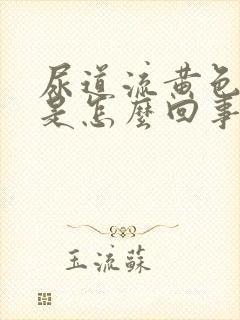 尿道流黄色
是怎麼回事
玉流蘇